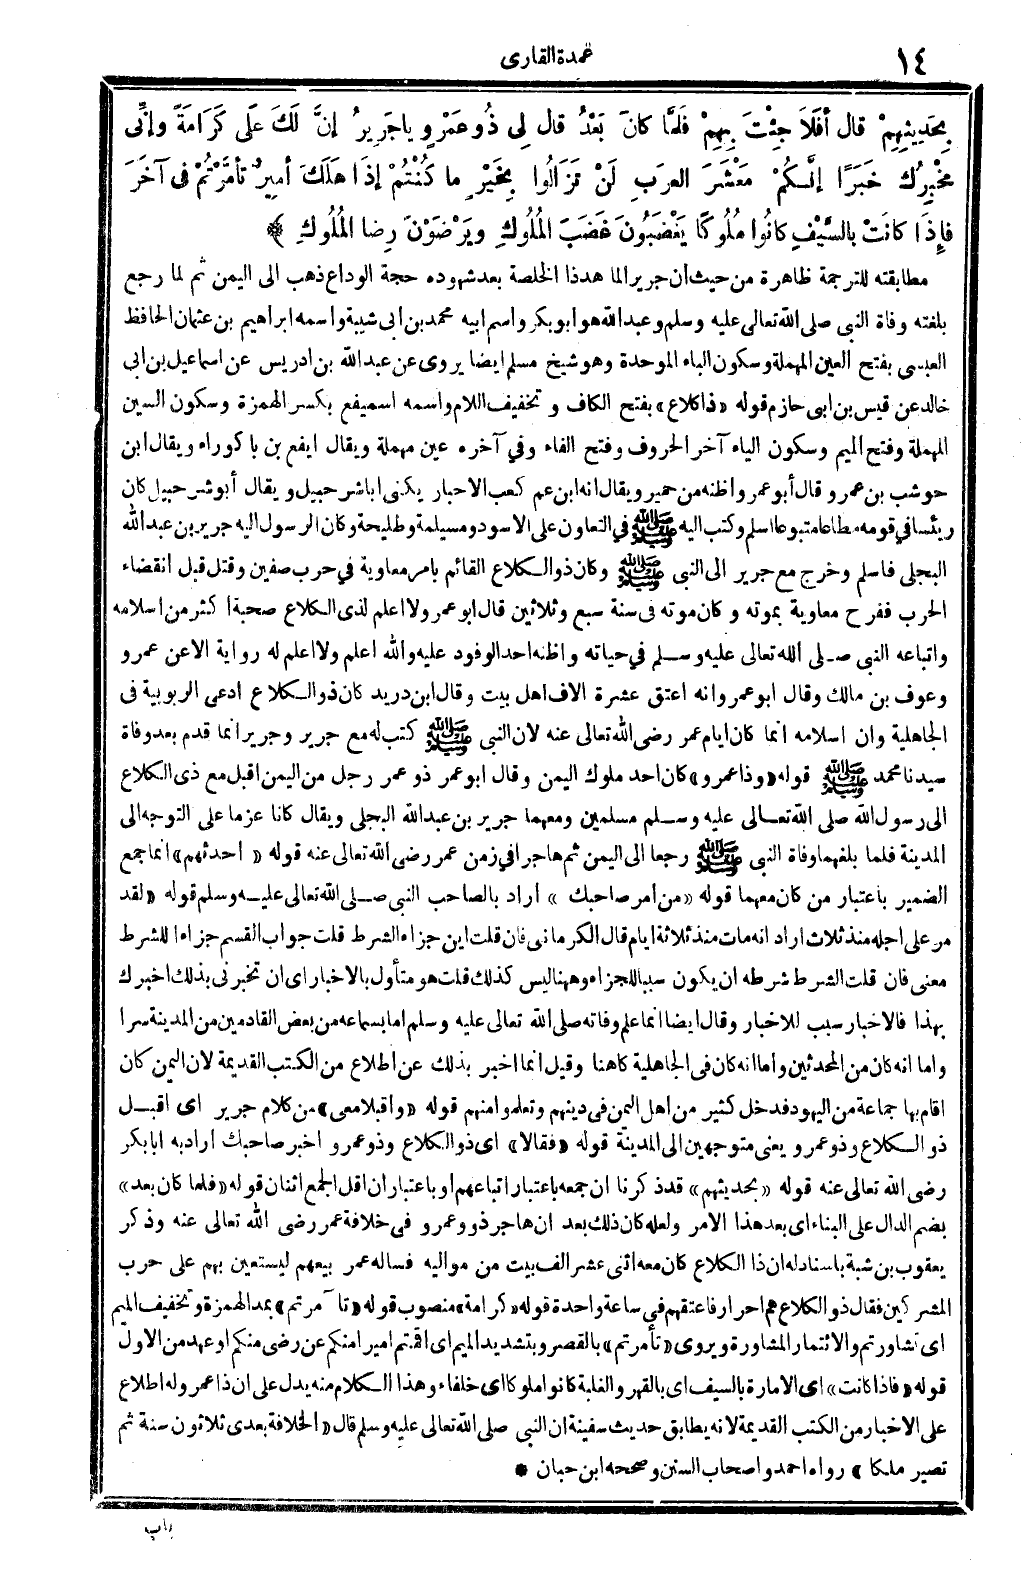 ١٤
عمدة القارى
بِحَدِيثِهِمْ قال أفَلاَ جِئْتَ بِهِمْ فَلَمَّا كانَ بَعْدُ قال لِي ذُو عَمْرٍو ياجَرِيرُ إنَّ لَكَ عَلَى كَرَامَةً وإنِّى
مُخْبِرُكَ خَبَرًا إنَّكُمْ مَعْشَرَ العَرَبِ لَنْ تَزَالُوا بِخَيْرٍ ما كُنْتُمْ إذَا هَلَكَ أمِيرٌ تأمَّرْتُمْ فى آخَرَ
فإِذَا كانَتْ بالسَّيْفِ كانُوا مُلُوكًا يَغْضَبُونَ غَضَبَ المُلُوكِ ويَرْضَوْنَ رِضا المُلُوكِ ﴾
مطابقته للترجمة ظاهرة من حيث ان جريرا لما هدذا الخلصة بعد شهوده حجة الوداع ذهب الى اليمن ثم لما رجع
بلغته وفاة النبى صلى الله تعالى عليه وسلم وعبدالله هو ابوبكر واسم ابيه محمد بن ابى شيبة واسمه ابراهيم بن عثمان الحافظ
العبسى بفتح العين المهملة وسكون الباء الموحدة وهو شيخ مسلم ايضا يروى عن عبد الله بن ادريس عن اسماعيل بن ابى
خالد عن قيس بن ابى حازم قوله «ذا كلاع» بفتح الكاف و تخفيف اللام واسمه اسميفع بكسر الهمزة وسكون السين
المهملة وفتح الميم وسكون الياء آخر الحروف وفتح الفاء وفي آخره عين مهملة ويقال ايفع بن باكوراء ويقال ابن
حوشب بن عمرو قال أبو عمرو اظنه من حمير ويقال انه ابن عم كعب الاحبار يكنى اباشرحبيل و يقال أبو شرحبيل كان
رئسا في قومه مطاعا متبوعا اسلم وكتب اليه ﷺ في التعاون على الاسود ومسيلمة وطليحة وكان الرسول اليه جرير بن عبدالله
البجلى فاسلم وخرج مع جرير الى النبى ﷺ وكان ذو الكلاع القائم بامر معاوية في حرب صفين وقتل قبل انقضاء
الحرب ففرح معاوية بموته و كان موته فى سنة سبع وثلاثين قال ابو عمر ولا اعلم لذى الكلاع صحبة اكثر من اسلامه
واتباعه النبى صلى الله تعالى عليه وسلم في حياته واظنه احد الوفود عليه والله اعلم ولا اعلم له رواية الا عن عمرو
وعوف بن مالك وقال ابو عمر وانه اعتق عشرة الاف اهل بيت وقال ابن دريد كان ذو الكلاع ادعى الربوبية فى
الجاهلية وان اسلامه انما كان ايام عمر رضى الله تعالى عنه لان النبى ﷺ كتب له مع جرير وجرير انما قدم بعد وفاة
سيدنا محمد ﷺ قوله «وذا عمرو» كان احد ملوك اليمن وقال ابو عمر ذو عمر رجل من اليمن اقبل مع ذى الكلاع
الى رسول الله صلى الله تعالى عليه وسلم مسلمين ومعهما جرير بن عبدالله البجلى ويقال كانا عزما على التوجه الى
المدينة فلما بلغهما وفاة النبى ﷺ رجعا الى اليمن ثم هاجرا في زمن عمر رضى الله تعالى عنه قوله « احدثهم» انما جمع
الضمير باعتبار من كان معهما قوله «من أمر صاحبك » أراد بالصاحب النبى صلى الله تعالى عليه وسلم قوله «لقد
مر على اجله منذ ثلاث اراد انه مات منذ ثلاثة ايام قال الكرمانى فان قلت اين جزاء الشرط قلت جواب القسم جزاء الشرط
معنى فان قلت الشرط شرطه ان يكون سببا للجزاء وههنا ليس كذلك قلت هو متأول بالاخبار اى ان تخبرنى بذلك اخبرك
بهذا فالاخبار سبب للاخبار وقال ايضا انما علم وفاته صلى الله تعالى عليه وسلم اما بسماعه من بعض القادمين من المدينة سرا
واما انه كان من المحدثين واما انه كان فى الجاهلية كاهنا وقيل انما اخبر بذلك عن اطلاع من الكتب القديمة لان اليمن كان
اقام بها جماعة من اليهود فدخل كثير من اهل اليمن فى دينهم وتعلموا منهم قوله «واقبلا معى» من كلام جرير اى اقبل
ذو الكلاع وذو عمرو يعنى متوجهين الى المدينة قوله «فقالا» اى ذو الكلاع وذو عمرو اخبر صاحبك أراد به ابا بكر
رضى الله تعالى عنه قوله «بحديثهم» قد ذكرنا ان جمعه باعتبار اتباعهم او باعتبار ان اقل الجمع اثنان قوله «فلما كان بعد»
بضم الدال على البناء اى بعد هذا الامر ولعله كان ذلك بعد ان هاجر ذو عمرو فى خلافة عمر رضى الله تعالى عنه وذكر
يعقوب بن شبة باسناد له ان ذا الكلاع كان معه اثنى عشر الف بيت من مواليه فساله عمر بيعهم ليستعين بهم على حرب
المشركين فقال ذو الكلاع هم احرار فاعتقهم في ساعة واحدة قوله «كرامة» منصوب قوله «تآمرتم» بمد الهمزة وتخفيف الميم
اى تشاورتم والائتمار المشاورة ويروى «تأمرتم» بالقصر وبتشديد الميم اى اقمتم اميرا منكم عن رضى منكم او عهد من الاول
قوله «فاذا كانت» اى الامارة بالسيف اى بالقهر والغلبة كانوا ملوكا اى خلفاء وهذا الكلام منه يدل على ان ذا عمرو له اطلاع
على الاخبار من الكتب القديمة لانه يطابق حديث سفينة ان النبى صلى الله تعالى عليه وسلم قال «الخلافة بعدى ثلاثون سنة ثم
تصير ملكا » رواه احمد واصحاب السنن وصححه ابن حبان *
باب